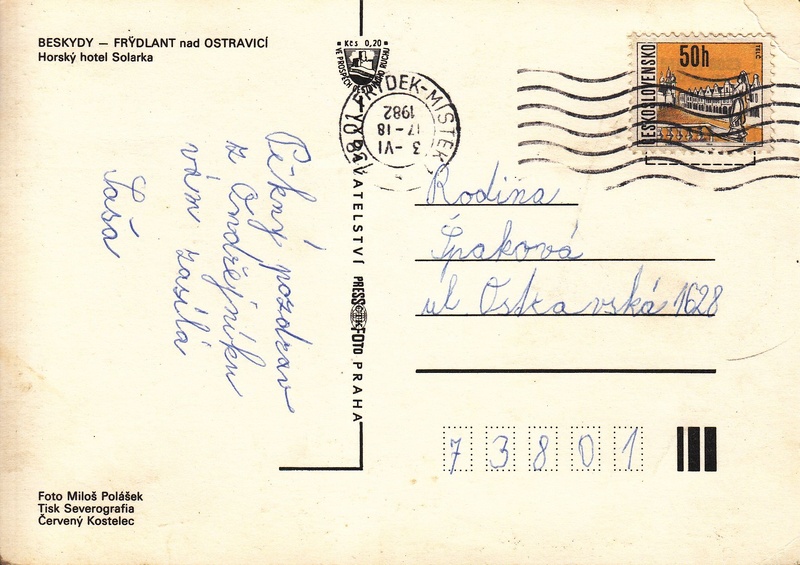 BESKYDY — FRÝDLANT nad OSTRAVICÍ
Horský hotel Solarka
Kčs 0,20
VE PROSPĚCH CESTOVNÍHO RUCHU
FRÝDEK-MÍSTEK
3 -VI
17-18
1982
738 01
50h
TELČ
ČESKOSLOVENSKO
Pěkný pozdrav
z Ondřejníku
vám zasílá
Saša
VYDAVATELSTVÍ PRESSFOTO PRAHA
Rodina
Špaková
ul Ostravská 1628
73801
Foto Miloš Polášek
Tisk Severografia
Červený Kostelec